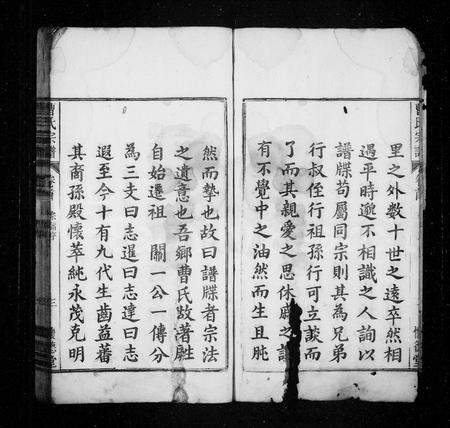 里之外數十世之遠卒然相
遇平時邈不相識之人詢以
譜牒苟屬同宗則其為兄弟
行叔侄行祖孫行可立談而
了而其親愛之思休戚之
有不覺中之油然而生且肫
然而摯也故曰譜牒者宗法
之遺意也吾鄉曹氏
自始遷祖 關一公一傳分
為三支曰志暹曰志達曰志
遐至今十有九代生齒益蕃
其裔孫殿懷萃純永茂克明
曹氏宗譜